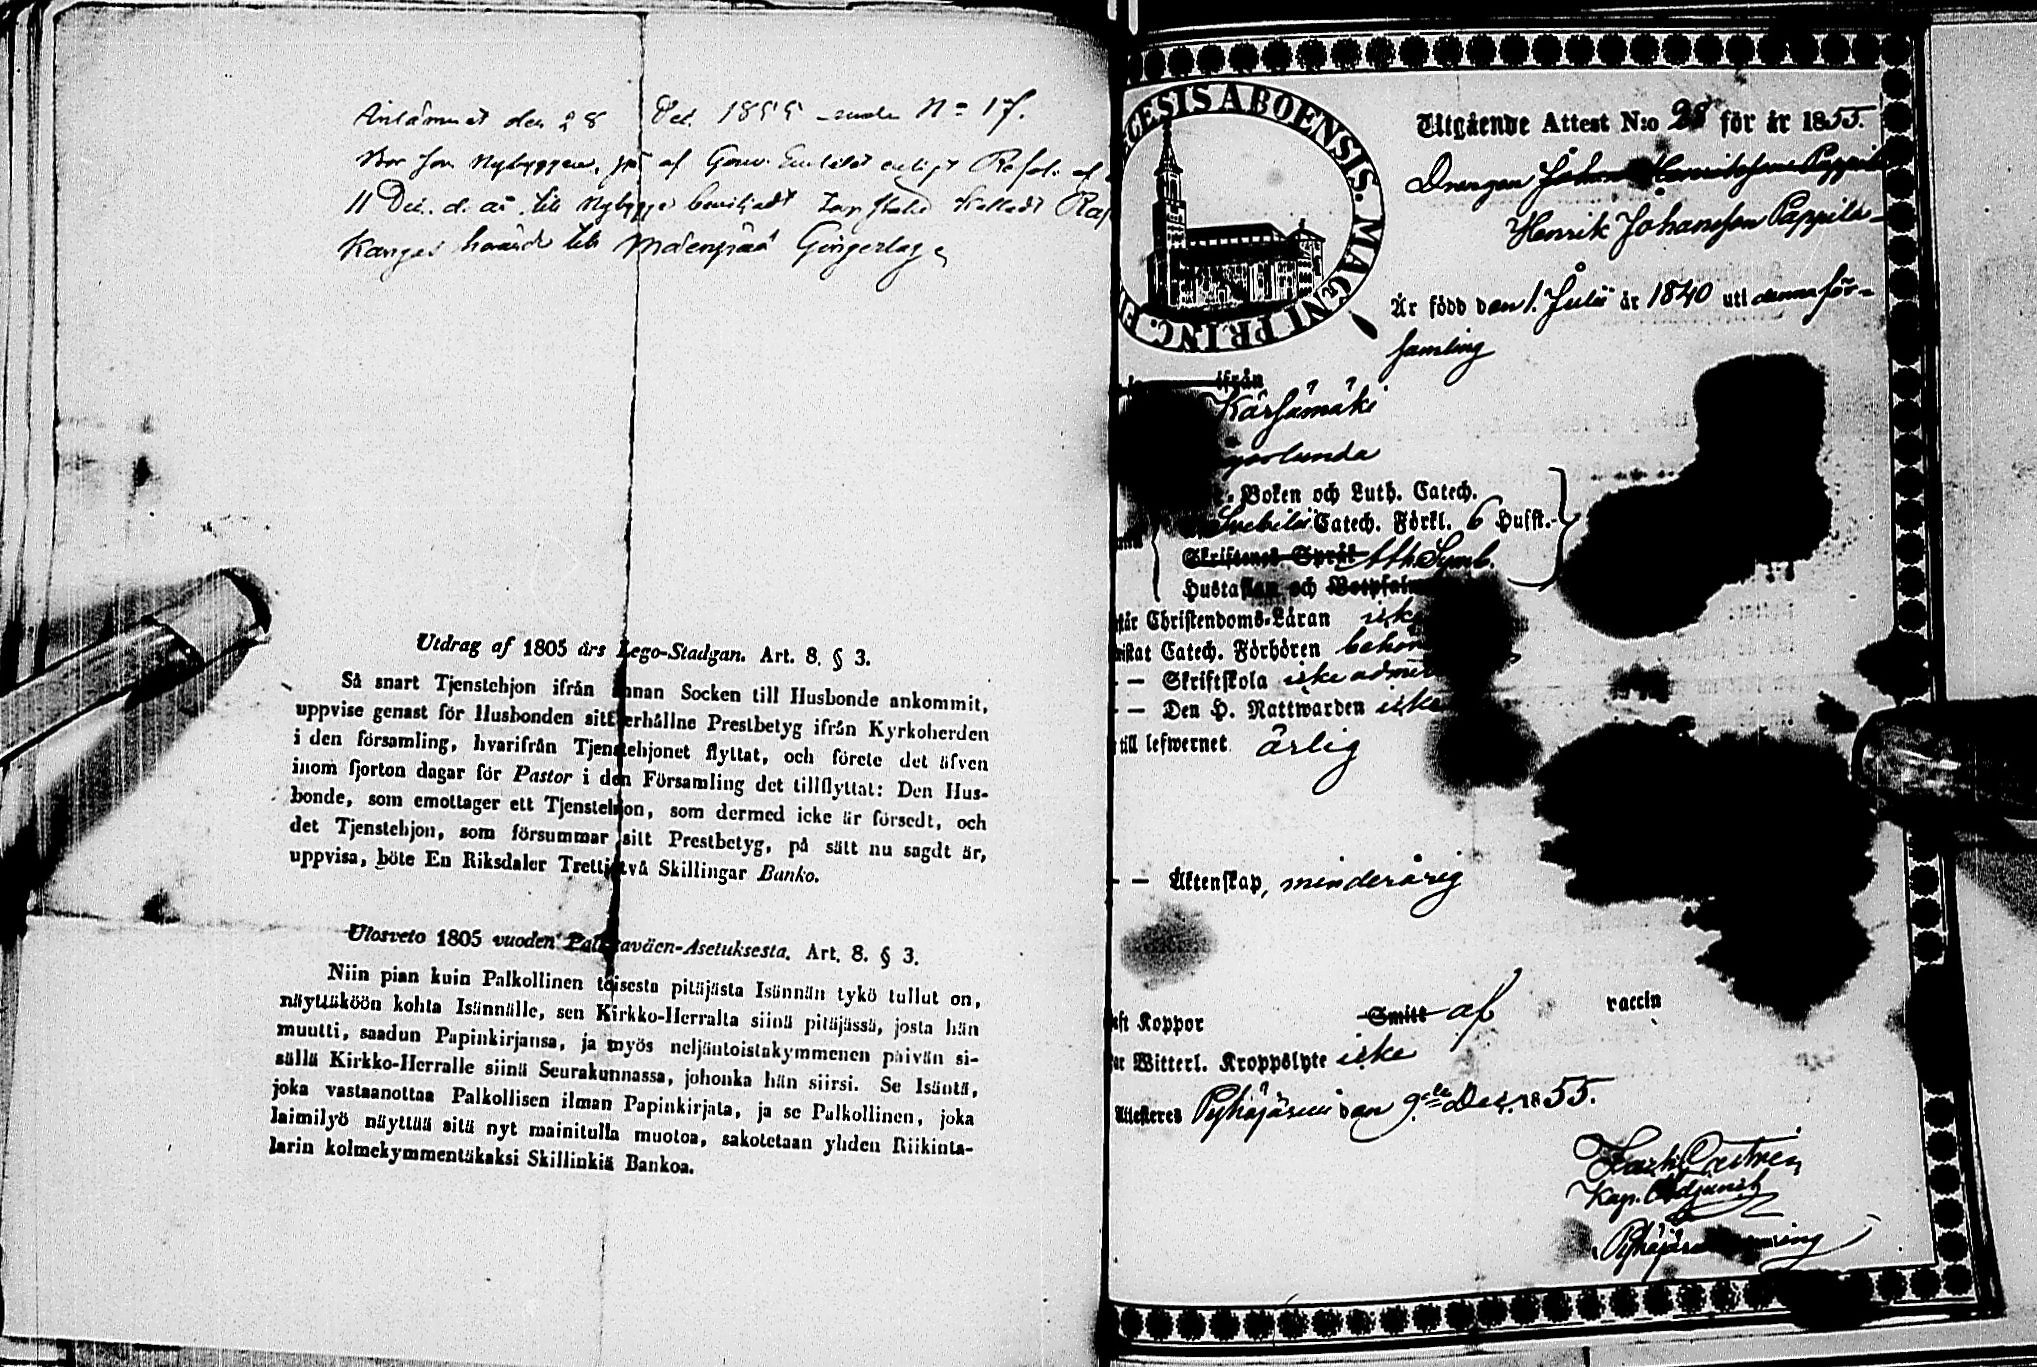 Inlämnat den 28 Dec. 1855 under N= 17.
Bor som Nybyggare, på af Gouv. Embetet enligt Resol. af
11 Dec. d. år. till Nybygge beviljadt kalladt
Kangas hörande till Mäenpää Gingerlag
Utdrag af 1805 års Lego-Stadgan. Art. 8. § 3.
Så snart Tjenstehjon ifrån annan Socken till Husbonde ankommit,
uppvise genast för Husbonden sitt erhållne Prestbetyg ifrån Kyrkoherden
i den församling, hvarifrån Tjenstehjonet flyttat, och förete det äfven
inom fjorton dagar för Pastor i den Församling det tillflyttat: Den Hus-
bonde, som emottager ett Tjenstehjon, som dermed icke är försedt, och
det Tjenstehjon, som försummar sitt Prestbetyg, på sätt nu sagdt är,
uppvisa, böte En Riksdaler Trettijotvå Skillingar Banko.
Ulosveto 1805 vuoden Palkkaväen-Asetuksesta. Art. 8. § 3.
Niin pian kuin Palkollinen toisesta pitäjästa Isännän tykö tullut on,
näyttäköön kohta Isännälle, sen Kirkko-Herralta siinä pitäjässä, josta hän
muutti, saadun Papinkirjansa, ja myös neljäntoistakymmenen päivän si-
sällä Kirkko-Herralle siinä Seurakunnassa, johonka hän siirsi. Se Isäntä,
joka vastaanottaa Palkollisen ilman Papinkirjata, ja se Palkollinen, joka
laimilyö näyttää sitä nyt mainitulla muotoa, sakotetaan yhden Riikinta-
larin kolmekymmentäkaksi Skillinkiä Bankoa.
ECESIS ABOENSIS. MAGNI PRINC. F
Utgående Attest N:o 28 för år 1855.
Drengen Johan Henriksson Pappila
Henrik Johansson Pappila
Är född den 1. Julii år 1840 uti denna för-
samling
ifrån
Kärsämäki
Boken och Luth. Catech.
Svebilii Catech. Förkl. 6 Husst.
Skriftenes Språk Ath. Symb.
Hustaflan och Botpsalm
står Christendoms-Läran
wistat Catech. Förhören behör
— — Skriftskola icke adm
— — Den H. Nattwarden icke
till lefwernet ärlig
— — Äktenskap, minderårig
aft Koppor Smitt af vaccin
har Witterl. Kroppslyte icke
Attesteras Pyhäjärvi den 9de Dec. 1855.
Castrén
Kap. Adjunct